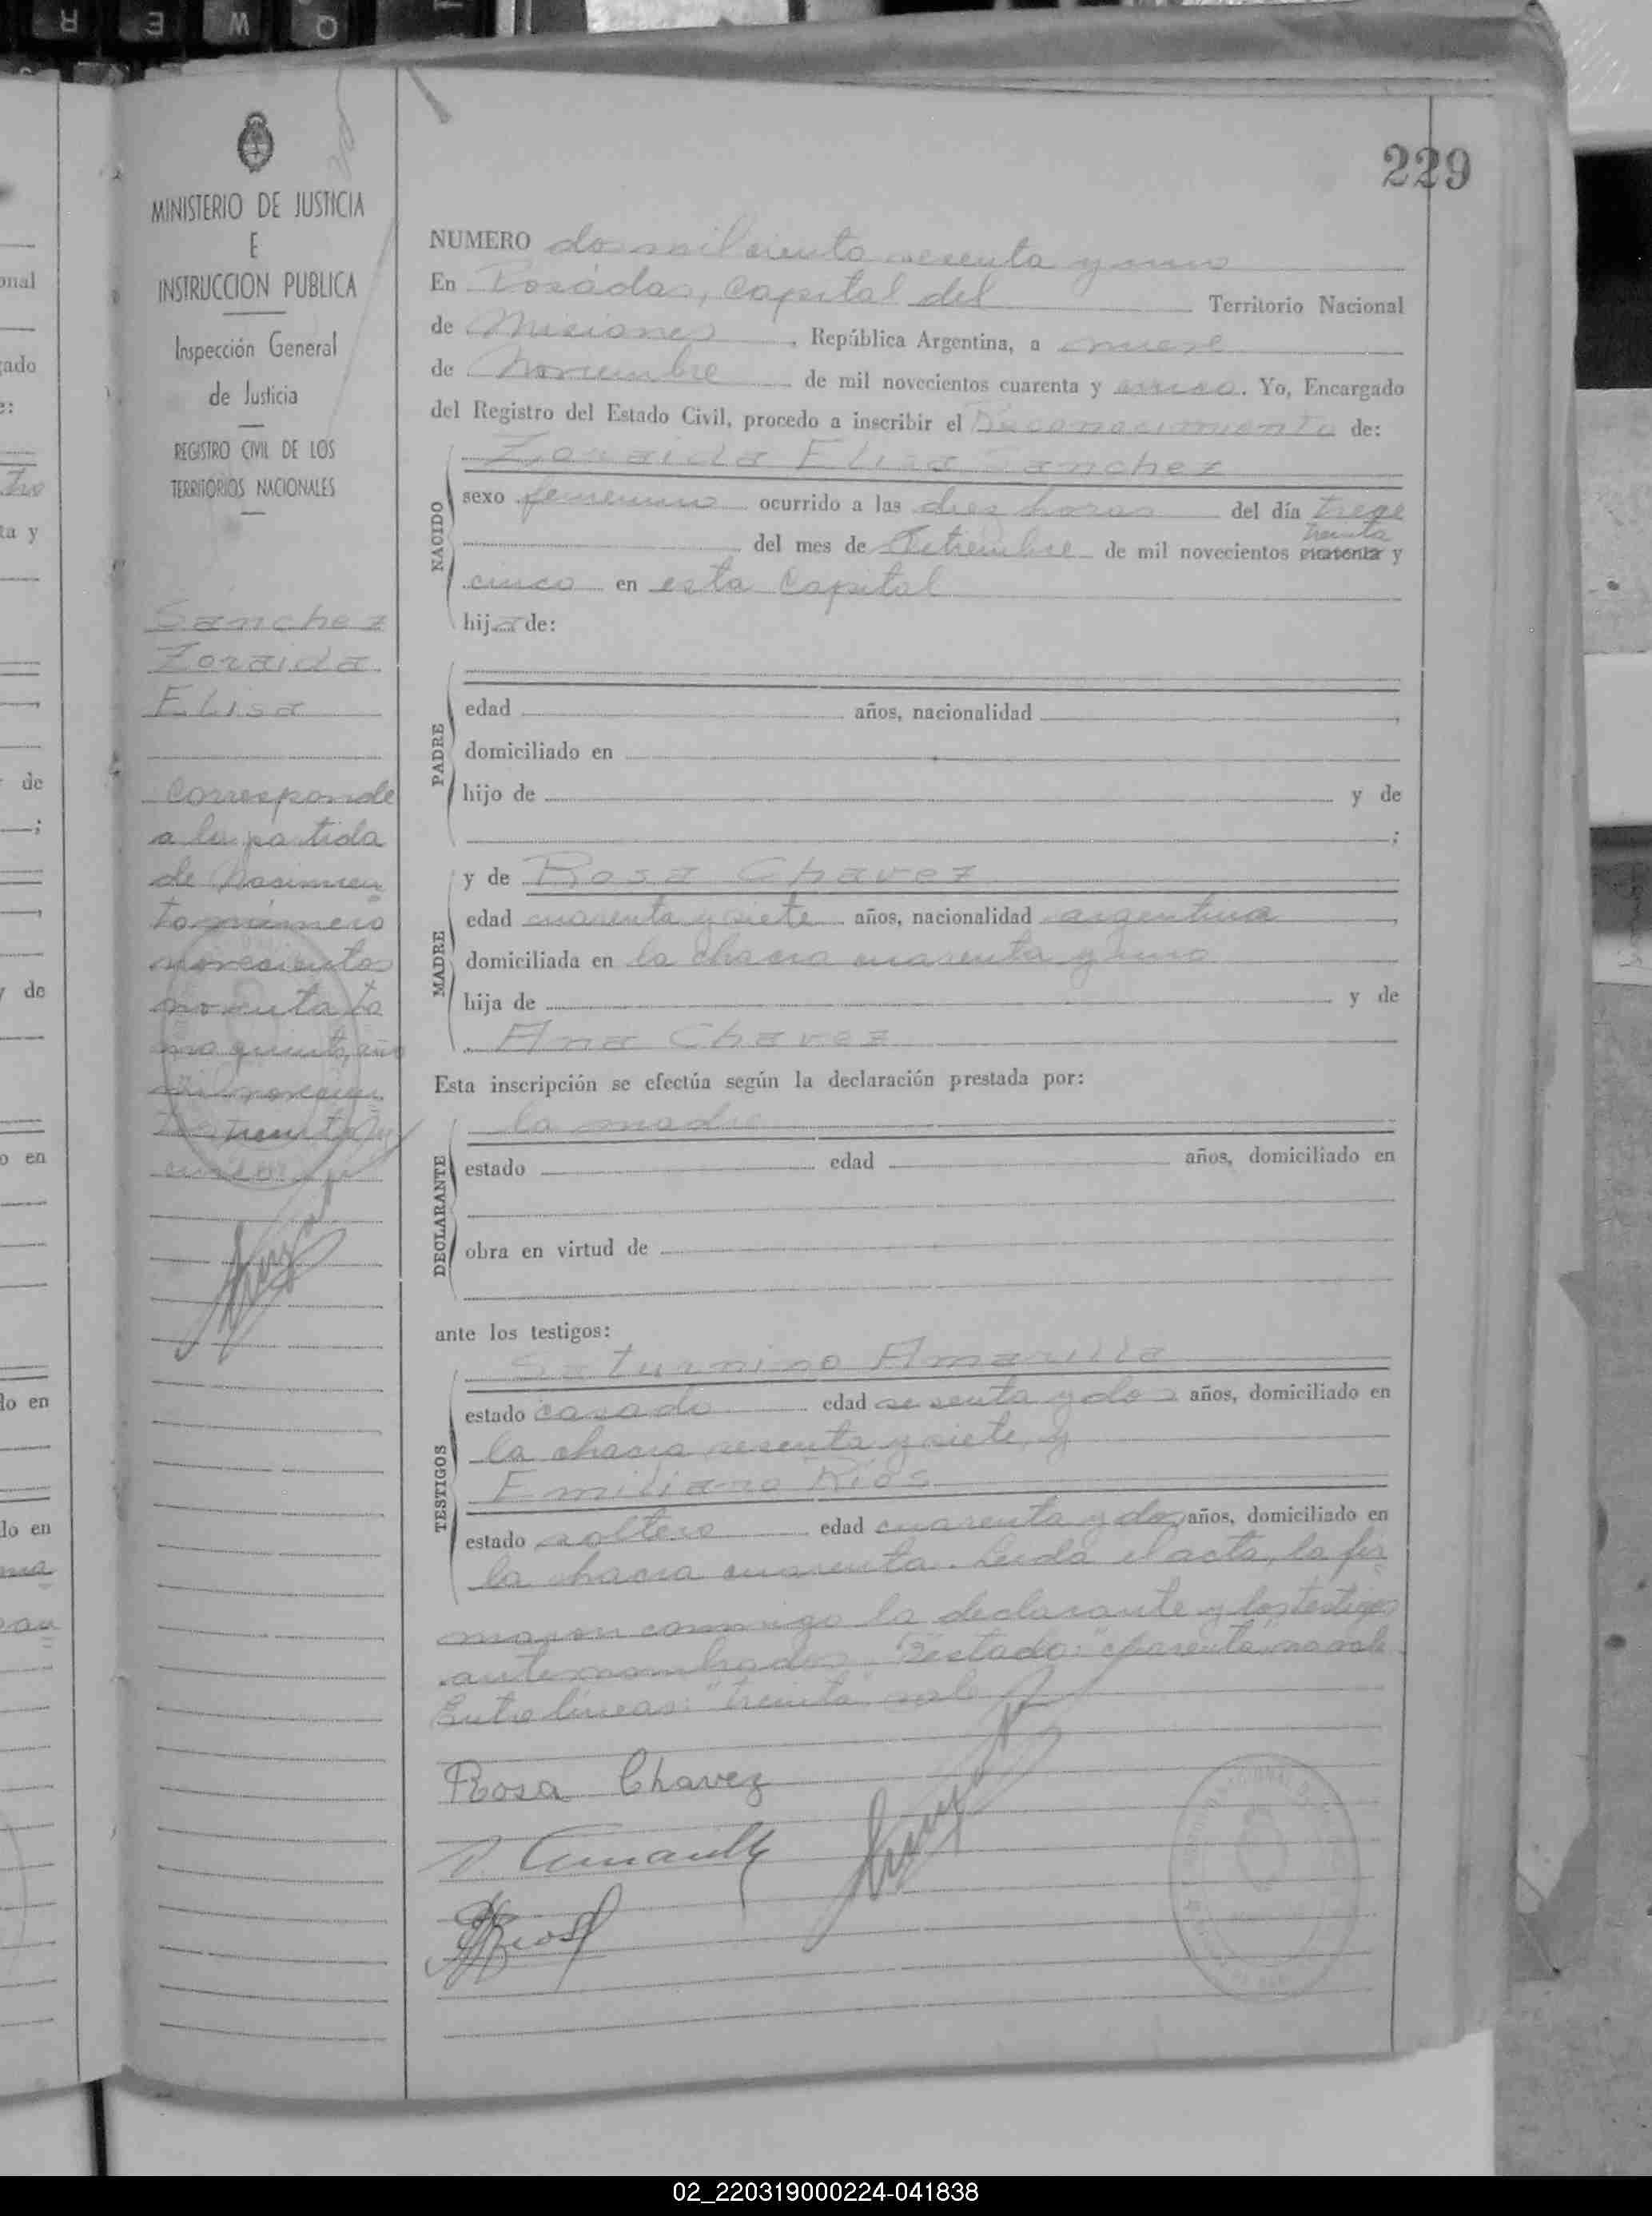 R E W Q
229
MINISTERIO DE JUSTICIA
E
INSTRUCCION PUBLICA
Inspección General
de Justicia
REGISTRO CIVIL DE LOS
TERRITORIOS NACIONALES
Sanchez
Zoraida
Elisa
Corresponde
a la partida
de Nacimien
to número
novecientos
noventa to
mo quinto, año
mil novecien
tos treinta y
cinco
NUMERO dos mil ciento sesenta y uno
En Posadas, Capital del Territorio Nacional
de Misiones, República Argentina, a nueve
de Noviembre de mil novecientos cuarenta y cinco. Yo, Encargado
del Registro del Estado Civil, procedo a inscribir el Reconocimiento de:
Zoraida Elisa Sanchez
NACIDO
sexo femenino ocurrido a las diez horas del día trece
treinta
del mes de Setiembre de mil novecientos cuarenta y
cinco en esta Capital
hija de:
PADRE
edad años, nacionalidad ,
domiciliado en
hijo de y de
;
MADRE
y de Rosa Chavez
edad cuarenta y siete años, nacionalidad argentina,
domiciliada en la chacra cuarenta y uno
hija de y de
Ana Chavez
Esta inscripción se efectúa según la declaración prestada por:
la madre
DECLARANTE
estado edad años, domiciliado en
obra en virtud de
ante los testigos:
TESTIGOS
Saturnino Amarilla
estado casado edad sesenta y dos años, domiciliado en
la chacra sesenta y siete, y
Emiliano Rios
estado soltero edad cuarenta y dos años, domiciliado en
la chacra cuarenta. Leida el acta, la fir
maron conmigo la declarante y los testigos
antenombrados. Testado: "cuarenta", no vale
Entre líneas: "treinta" vale
Rosa Chavez
Amarilla
Rios
onal
gado
e:
ta y
de
y de
o en
do en
do en
02_220319000224-041838